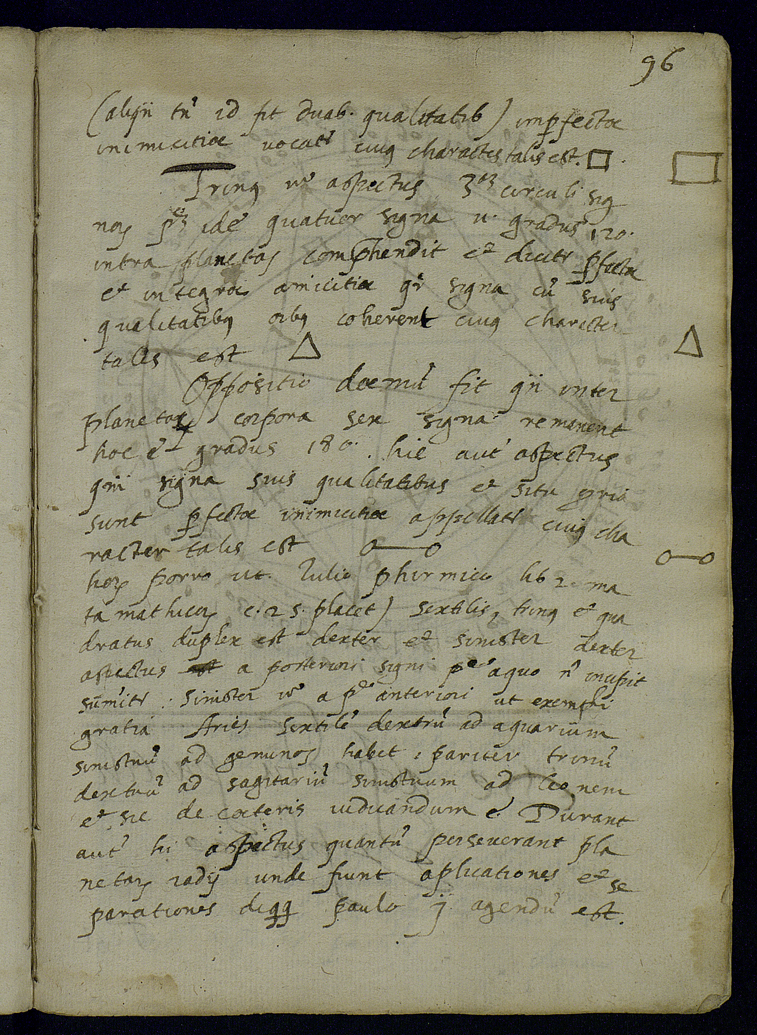 96
(aliqñ tñ id fit duab. qualitatib) imperfectae
inimicitiae vocatr cuius character talis est □.
Trinus vo aspectus 3am circuli sig
nor partem ide quatuor signa v. gradus 120.
intra planetas comprehendit et dicitr perfectae
et integrae amicitiae qr signa cũ suis
qualitatibus oibus coherent cuius character
talis est △
Oppositio doemũ fit qñ inter
planetar corpora sex signa remanent
hoc ẽ gradus 180. hic aut aspectus
qñ signa suis qualitatibus et situ
sunt perfectae inimicitiae appellatr cuius cha
racter talis est o—o
hor porro ut Iulio phirmico lib 2 ma
tamathicor c. 25. placet) sextilis, trinus et qua
dratus duplex est dexter et sinister dexter
aspectus a posteriori signi parte a quo
sumitr : sinister vo a pte anteriori ut exempli
gratia Aries sextilẽ dextrũ ad aquarium
sinistrũ ad geminos habet, pariter trinũ
dextrũ ad sagitariũ sinistrum ad leonem
et sic de coeteris iudicandum ẽ. Durant
aut hi aspectus quantũ perseverant pla
netar radij unde fiunt aplicationes et se
parationes paulo agendũ est.
□
△
o—o